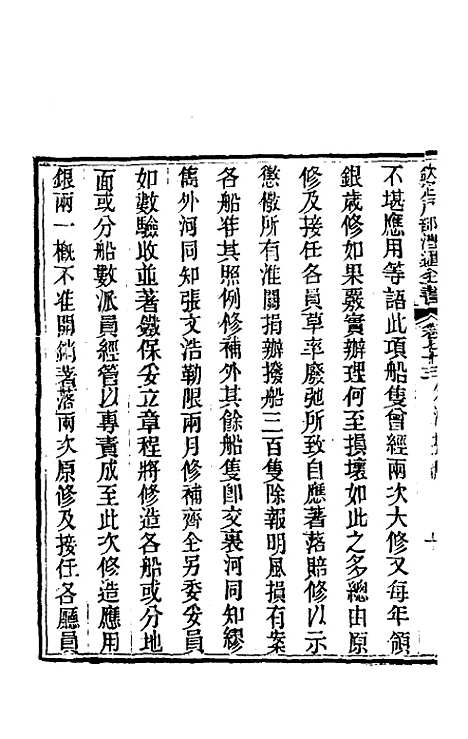 欽定戶部漕運全書
不堪應用等語此項船隻曾經兩次大修又每年領
銀歲修如果覈實辦理何至損壞如此之多總由原
修及接任各員草率廢弛所致自應著落賠修以示
懲儆所有淮關捐辦撥船三百隻除報明風損有案
各船准其照例修補外其餘船隻卽交裏河同知繆
儁外河同知張文浩勒限兩月修補齊全另委妥員
如數驗收並著鐵保妥立章程將修造各船或分地
面或分船數派員經管以專責成至此次修造應用
銀兩一概不准開銷著落兩次原修及接任各廳員